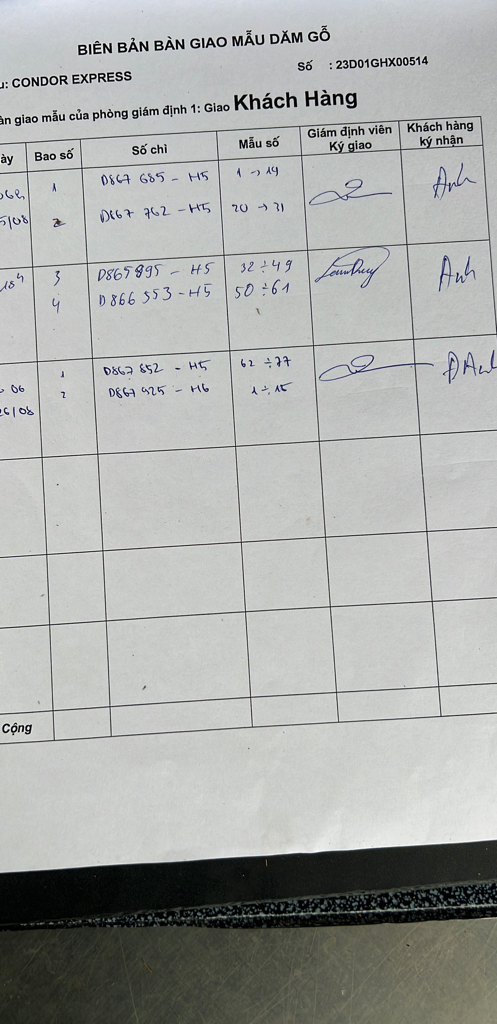 BIÊN BẢN BÀN GIAO MẪU DĂM GỖ
Số : 23D01GHX00514
u: CONDOR EXPRESS
àn giao mẫu của phòng giám định 1: Giao Khách Hàng
ày Bao số Số chì Mẫu số Giám định viên Ký giao Khách hàng ký nhận
1 D867 685 - H5 1 → 19 Anh
5/08 2 D867 762 - H5 20 → 31
3 D865895 - H5 32 ÷ 49 Anh
4 D866 553 - H5 50 ÷ 61
06 1 D867 852 - H5 62 ÷ 77 Đ Anh
26/08 2 D867 925 - H6 1 ÷ 15
Cộng